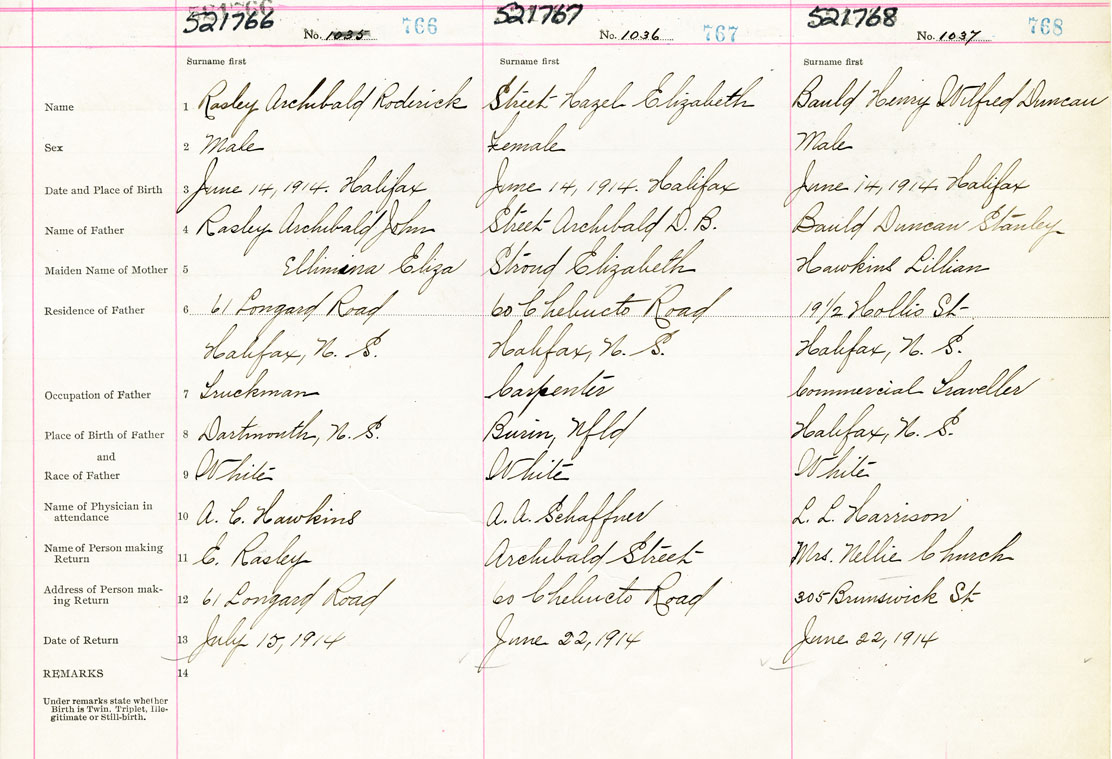 521766 521767 521768
No. 1035 766 No. 1036 767 No. 1037 768
Surname first Surname first Surname first
Name 1 Rasley Archibald Roderick Street Hazel Elizabeth Bauld Henry Wilfred Duncan
Sex 2 Male Female Male
Date and Place of Birth 3 June 14, 1914. Halifax June 14, 1914. Halifax June 14, 1914. Halifax
Name of Father 4 Rasley Archibald John Street Archibald D. B. Bauld Duncan Stanley
Maiden Name of Mother 5 Ellimina Eliza Stroud Elizabeth Hawkins Lillian
Residence of Father 6 61 Longard Road 60 Chebucto Road 19 1/2 Hollis St
Halifax, N. S. Halifax, N. S. Halifax, N. S.
Occupation of Father 7 Truckman Carpenter Commercial Traveller
Place of Birth of Father 8 Dartmouth, N. S. Burin, Nfld Halifax, N. S.
and
Race of Father 9 White White White
Name of Physician in
attendance 10 A. C. Hawkins A. A. Schaffner L. L. Harrison
Name of Person making
Return 11 E. Rasley Archibald Street Mrs. Nellie Church
Address of Person mak-
ing Return 12 61 Longard Road 60 Chebucto Road 305 Brunswick St
Date of Return 13 July 15, 1914 June 22, 1914 June 22, 1914
REMARKS 14
Under remarks state whether
Birth is Twin. Triplet, Ille-
gitimate or Still-birth.